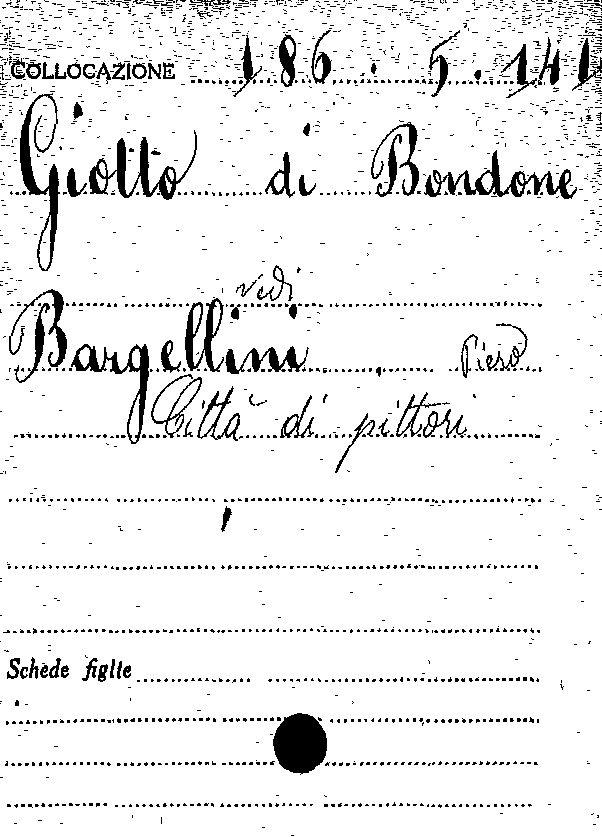 COLLOCAZIONE 186.5.141
Giotto di Bondone
vedi
Bargellini, Piero
Città di pittori
Schede figlie